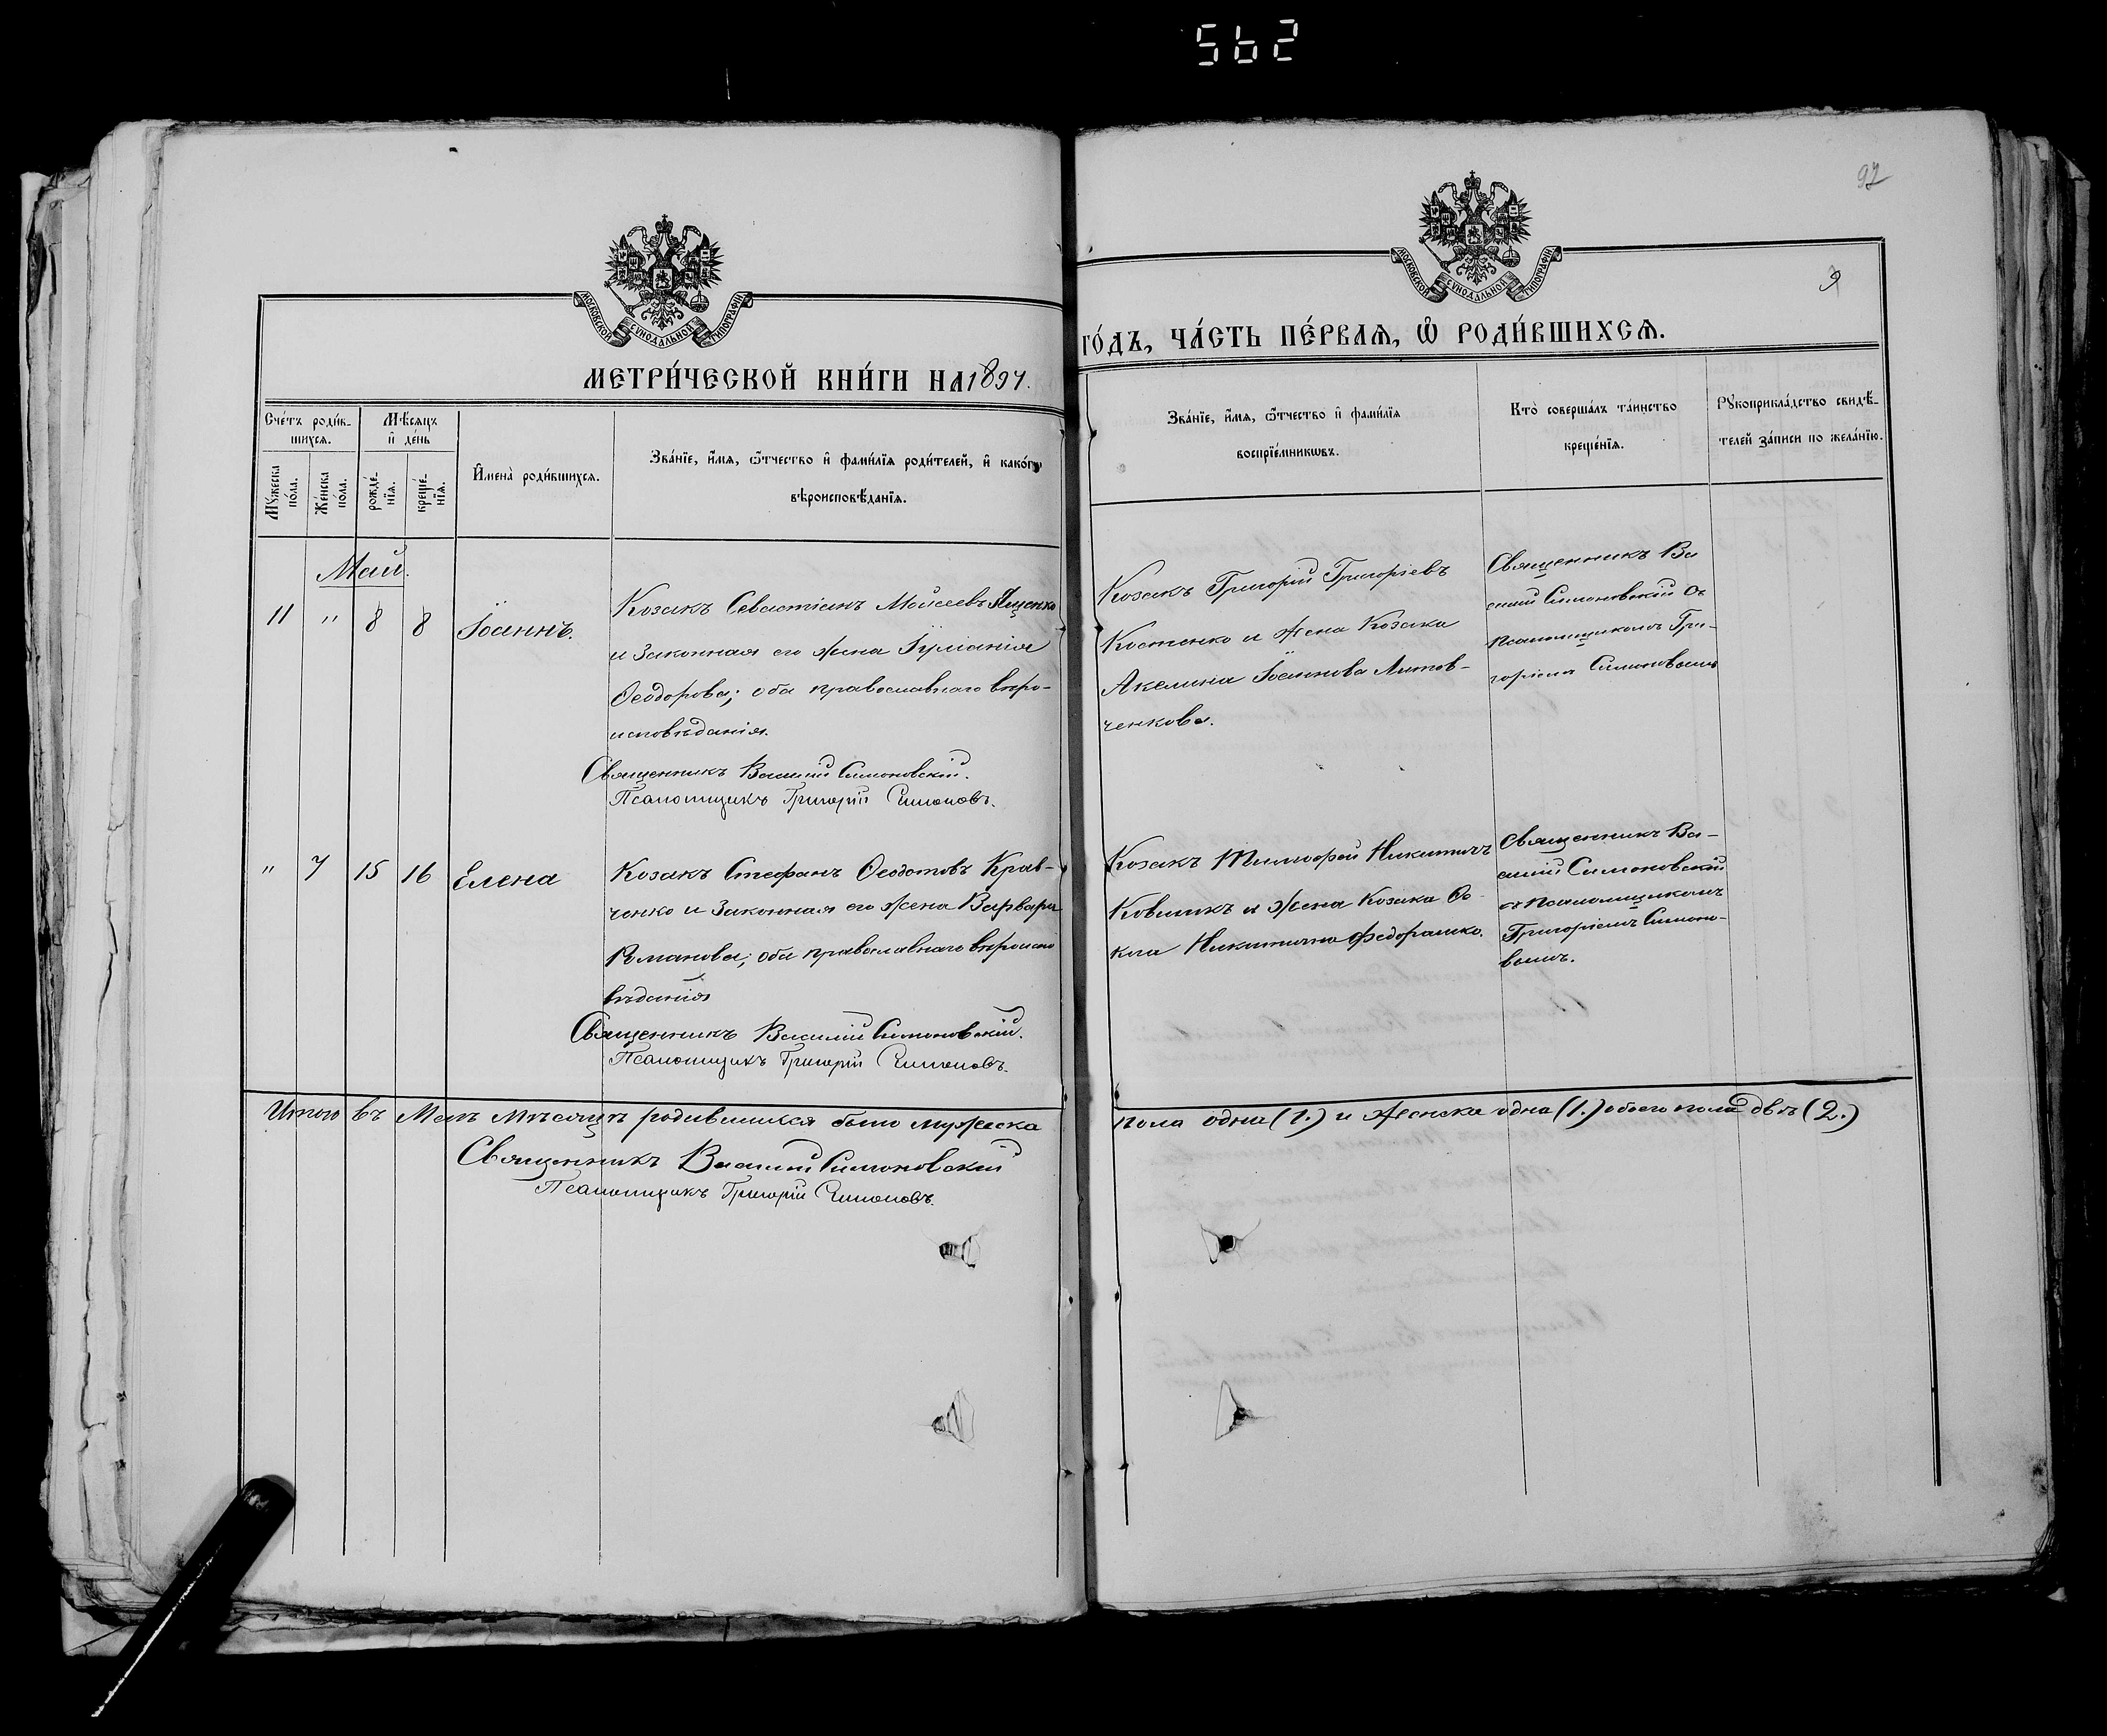 562
92
9
МОСКОВСКОЙ СѴНОДАЛЬНОЙ ТИПОГРАФІИ
МОСКОВСКОЙ СѴНОДАЛЬНОЙ ТИПОГРАФІИ
МЕТРИ́ЧЕСКОЙ КНИ́ГИ НА 1897.
ГО́ДЪ, ЧА́СТЬ ПЕ́РВАЯ, Ѡ РОДИ́ВШИХСЯ.
Сче́тъ роди́в-
шихся.
Мꙋжеска по́ла.
Же́нска по́ла.
Мѣ́сяцъ
и де́нь
рожде́-
нїя.
креще́-
нїя.
Имена̀ роди́вшихся.
Зва́нїе, и́мя, ѻ́тчество и фами́лїя роди́телей, и како́гѡ
вѣроисповѣ́данїя.
Зва́нїе, и́мя, ѻ́тчество и фами́лїя
воспрїе́мникѡвъ.
Кто̀ соверша́лъ та́инство
креще́нїя.
Рꙋкоприкла́дство свидѣ́-
телей за́писи по жела́нїю.
Май.
11 " 8 8 Іоаннъ.
Козакъ Севастіанъ Моисеевъ Яценко
и законная его жена Іуліанія
Ѳеодорова; оба православнаго вѣро-
исповѣданія.
Священникъ Василій Симоновскій.
Псаломщикъ Григорій Симоновъ.
Козакъ Григорій Григоріевъ
Костенко и жена Козака
Акелина Іоаннова Литов-
ченкова.
Священникъ Ва
силій Симоновскій съ
псаломщикомъ Гри-
горіемъ Симоновымъ
" 7 15 16 Елена
Козакъ Стефанъ Ѳеодотовъ Крав-
ченко и законная его жена Варвара
Романова; оба православнаго вѣроиспо
вѣданія
Священникъ Василій Симоновскій.
Псаломщикъ Григорій Симоновъ.
Козакъ Тимофей Никитичъ
Ковшикъ и жена Козака Ѳе
кла Никитична Федорашко.
Священникъ Ва-
силій Симоновскій
съ псаломщикомъ
Григоріемъ Симоно-
вымъ.
Итого въ Маѣ мѣсяцѣ родившихся было мужеска
пола одна (1.) и женска одна (1.) обоего пола двѣ (2.)
Священникъ Василій Симоновскій
Псаломщикъ Григорій Симоновъ.